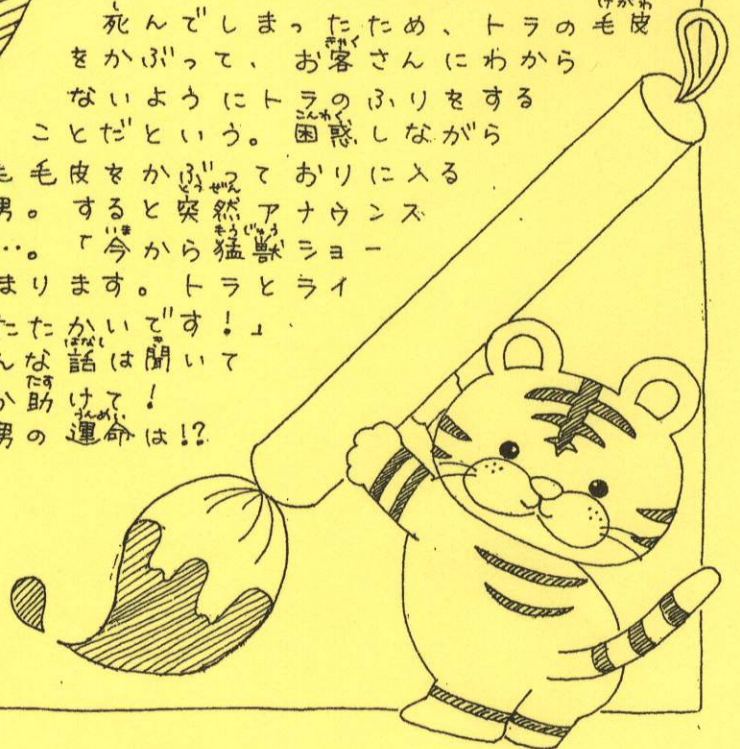 死んでしまったため、トラの毛皮
をかぶって、お客さんにわから
ないようにトラのふりをする
ことだという。困惑しながら
も毛皮をかぶっておりに入る
男。すると突然アナウンス
…。「今から猛獣ショー
まります。トラとライ
たたかいです!」
んな話は聞いて
か助けて!
男の運命は!?